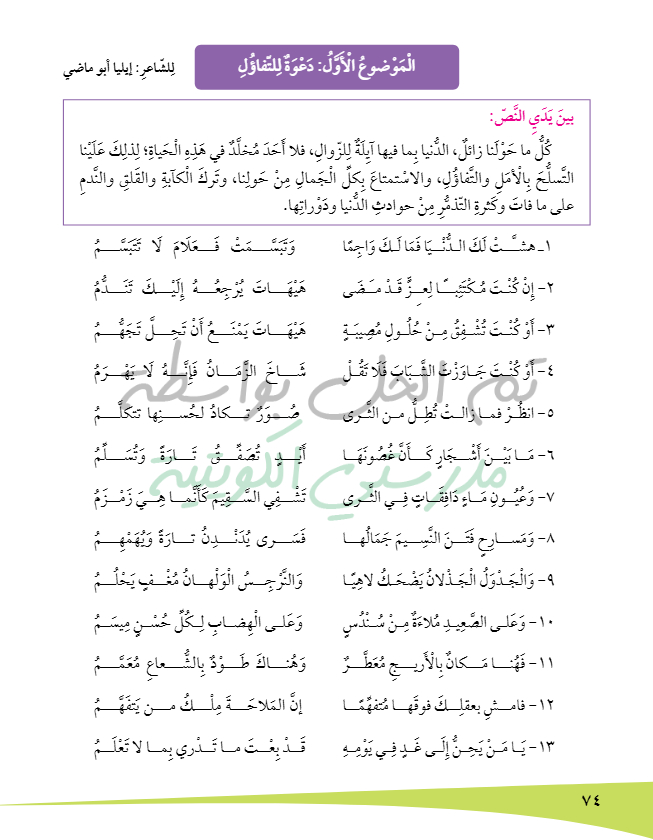 الْمَوْضوعُ الْأَوَّلُ: دَعْوَةٌ لِلتَّفاؤُلِ
لِلشّاعرِ: إيليا أبو ماضي
بينَ يَدَيِ النَّصِّ:
كُلُّ ما حَوْلَنا زائلٌ، الدُّنيا بِما فيها آيِلَةٌ لِلزَّوالِ، فلا أَحَدَ مُخلَّدٌ في هَذِهِ الْحَياةِ؛ لِذلِكَ عَلَيْنا
التَّسلُّحَ بِالْأمَلِ والتَّفاؤُلِ، والاسْتمتاعَ بِكلِّ الْجَمالِ مِنْ حَولِنا، وتركَ الْكَآبةِ والْقلقِ والنَّدمِ
على ما فاتَ وكثرةِ التّذمُّرِ مِنْ حوادثِ الدُّنيا ودَوْراتِها.
١ـ هشَّتْ لَكَ الدُّنْيَا فَمَا لَكَ وَاجِمًا وَتَبَسَّمَتْ فَعَلَامَ لَا تَتَبَسَّمُ
٢- إِنْ كُنْتَ مُكْتَئِبًا لِعِزٍّ قَدْ مَضَى هَيْهَاتَ يُرْجِعُهُ إِلَيْكَ تَنَدُّمُ
٣- أَوْ كُنْتَ تُشْفِقُ مِنْ حُلُولِ مُصِيبَةٍ هَيْهَاتَ يَمْنَعُ أَنْ تَحِلَّ تَجَهُّمُ
٤- أَوْ كُنْتَ جَاوَزْتَ الشَّبَابَ فَلَا تَقُلْ شَاخَ الزَّمَانُ فَإِنَّهُ لَا يَهْرَمُ
٥- انظُرْ فما زالتْ تُطِلُّ من الثَّرى صُوَرٌ تكادُ لحُسنِها تتكلَّمُ
٦- مَا بَيْنَ أَشْجَارٍ كَأَنَّ غُصُونَهَا أَيْدٍ تُصَفِّقُ تَارَةً وَتُسَلِّمُ
٧- وَعُيُونِ مَاءٍ دَافِقَاتٍ فِي الثَّرى تَشْفِي السَّقِيمَ كَأَنَّما هِيَ زَمْزَمُ
٨- وَمَسَارِحٍ فَتَنَ النَّسِيمَ جَمَالُها فَسَرى يُدَنْدِنُ تارَةً وَيُهَمْهِمُ
٩- وَالْجَدْوَلُ الْجَذْلانُ يَضْحَكُ لاهِيًا وَالنَّرْجِسُ الْوَلْهانُ مُغْفٍ يَحْلُمُ
١٠- وَعَلى الصَّعِيدِ مُلاءَةٌ مِنْ سُنْدُسٍ وَعَلى الْهِضابِ لِكُلِّ حُسْنٍ مِيسَمُ
١١- فَهُنا مَكانٌ بِالْأَرِيجِ مُعَطَّرٌ وَهُناكَ طَوْدٌ بِالشُّعاعِ مُعَمَّمُ
١٢- فامشِ بعقلِكَ فوقَها مُتفهِّمًا إنَّ المَلاحَةَ مِلْكُ من يَتفَهَّمُ
١٣- يَا مَنْ يَحِنُّ إِلَى غَدٍ فِي يَوْمِهِ قَدْ بِعْتَ ما تَدْرِي بِما لا تَعْلَمُ
تم الحل بواسطة
مدرستي الكويتية
٧٤